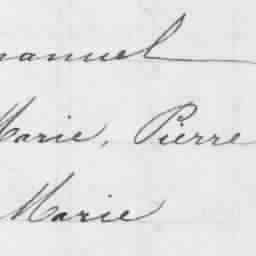 manuel
Marie, Pierre
Marie